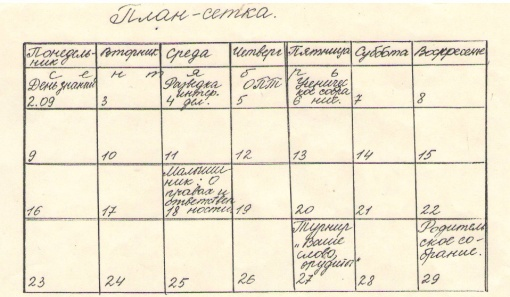 План-сетка.
Понедель-
ник Вторник Среда Четверг Пятница Суббота Воскресенье
сентябрь
День знаний
2.09
3
Разведка
интер.
дел.
4
ОПТ
5
Ученичес
кое собра
ние.
6
7
8
9 10 11 12 13 14 15
16
17
ник: О
правах и
ответствен
ности.
18
19
20
21
22
23
24
25
26
Турнир
"Ваше
слово,
эрудиты"
27
28
Родитель
ское со-
брание.
29